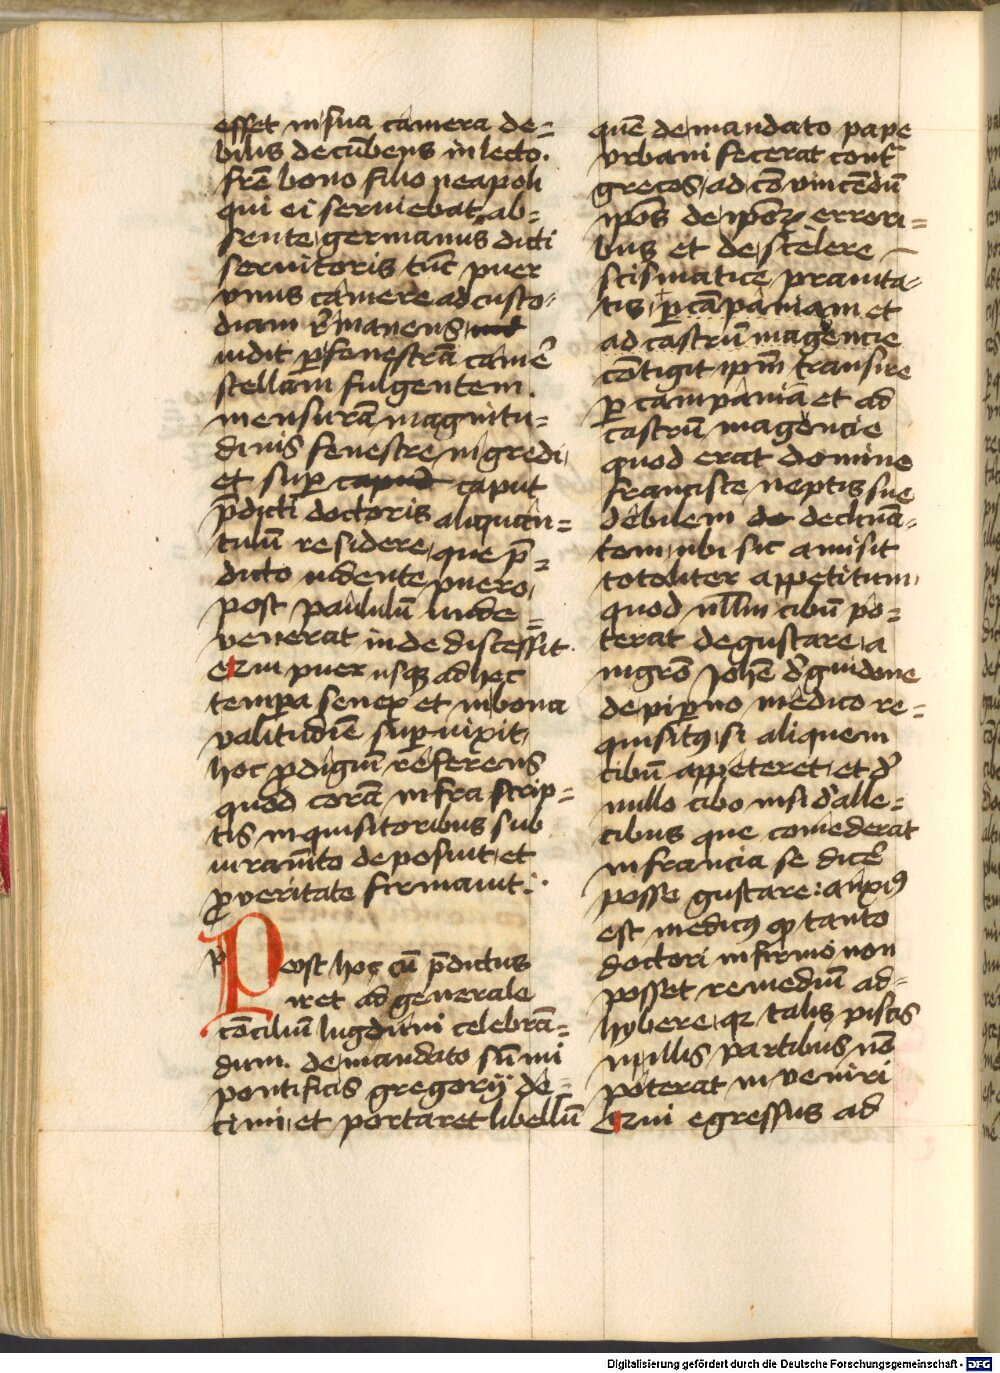 esset in sua camera de=
bilis decūbens in lecto.
fr̄e bono filio neapoli
qui ei seruiebat ab=
sente germanus dicti
seruitoris tūc puer
vnus camere ad custo-
diam r̄manens
uidit p fenestrā camē
stellam fulgentem.
mensurā magnitu=
dinis fenestre ingredi
et sup capud caput
p̄dicti doctoris aliquan=
tulū residere que p̄=
dicto uidente puero
post paululū unde
venerat inde discessit.
puer usq ad hec
tempora senex et in bona
valitudīe sup uixit
hoc p̄digiū referens
quod corā infra scrip=
tis inquisitoribus sub
iuramīto deposuit et
p veritate firmauit.
Post hoc cū p̄dictus
iret ad generale
cōncilīu lugduni celebrā=
dum. de mandato sūmi
pontificis gregorij de=
cimi et portaret libellū
quē de mandato pape
vrbani fecerat cont̄
grecos ad cōvincendū
ip̄os de ip̄oꝝ errori=
bus et de scelere
scismatice prauita-
tis p cāpaniam et
ad castrū magencie
cōtigit ip̄m transire
p campaniā et ad
castrū magencie
quod erat domine
francisce neptis sue
debilem de declinā=
tem ubi sic amisit
totaliter appetitum
quod nllm cibū po=
terat degustare a
mgrō Joh̄e d̄ guidone
de piperno medico re=
quisitꝯ si aliquem
cibū appeteret et d̄
nullo cibo nisi d̄ alle=
cibus que comederat
in francia se dicē
posse gustare: anxiꝯ
est medicꝯ ꝙ tanto
doctori infirmo non
posset remediū ad=
hybere qꝛ talis piscis
in illis partibus nō
poterat inveniri
egressus ad
Digitalisierung gefördert durch die Deutsche Forschungsgemeinschaft - DFG